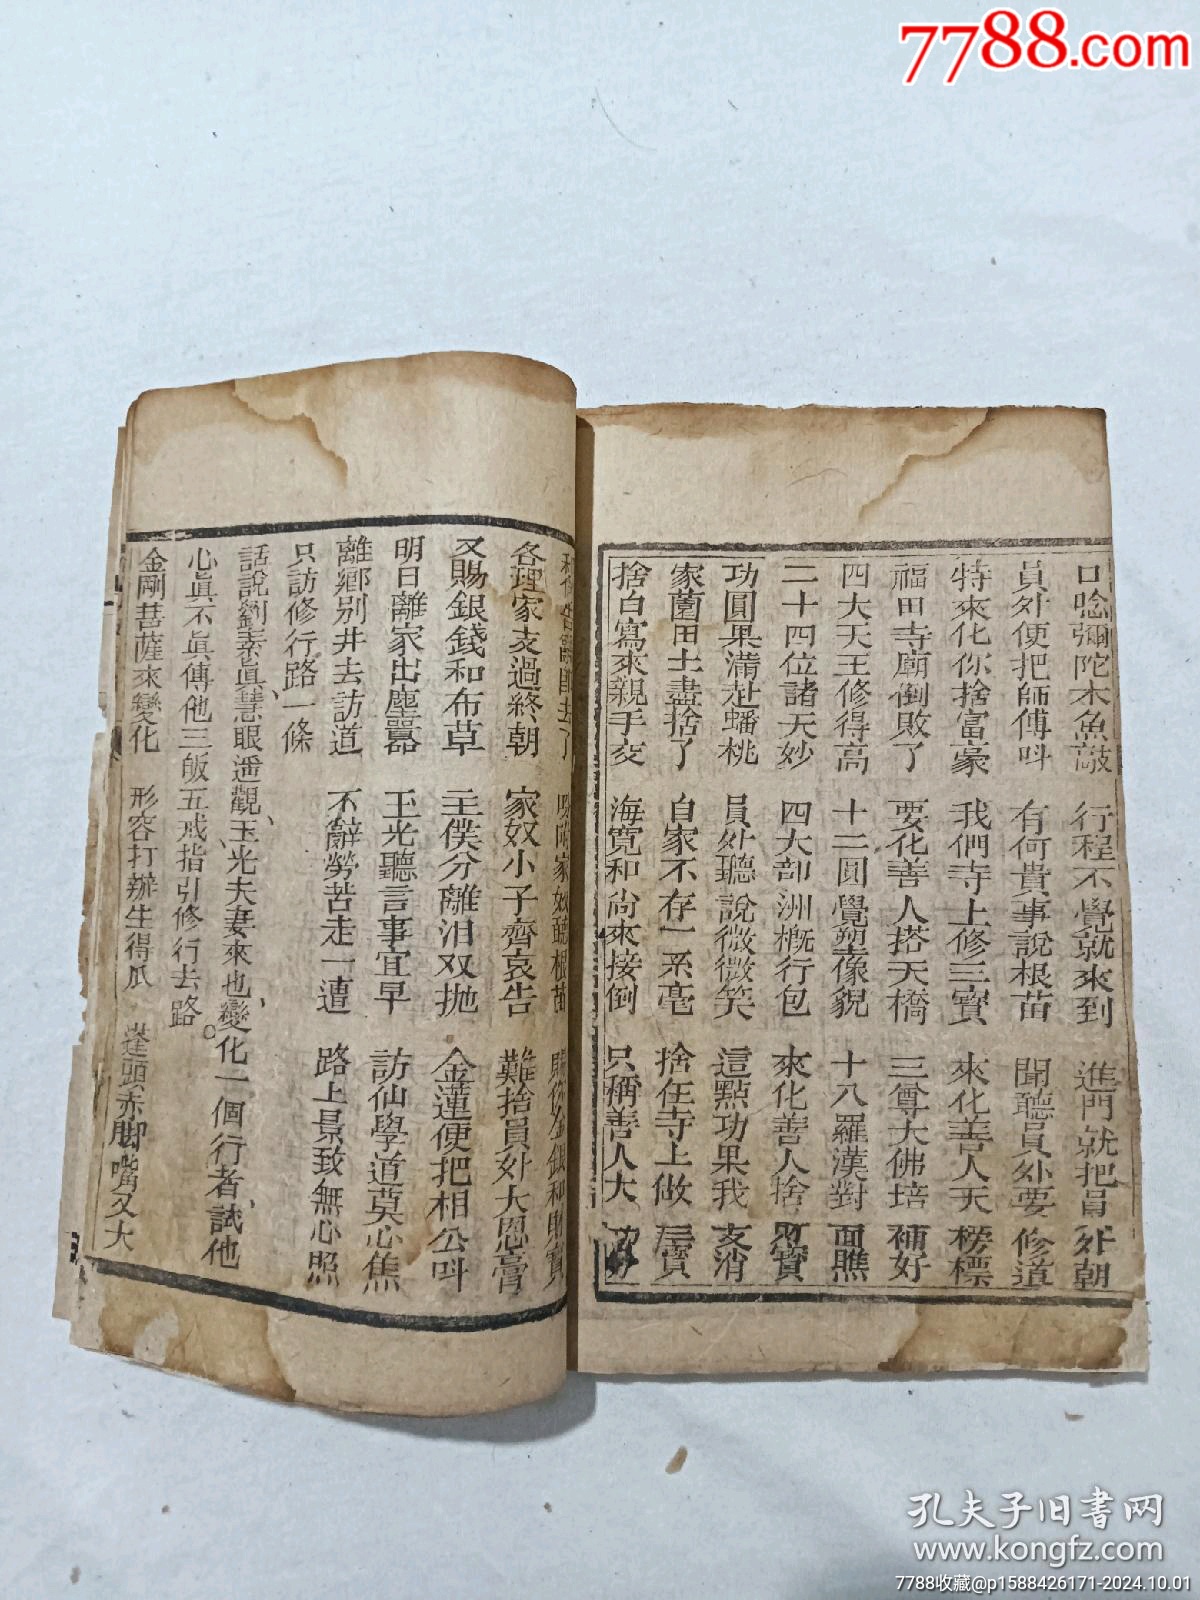 7788.com
口唸彌陀木魚敲 行程不覺就來到 進門就把員外朝
員外便把師傅呌 有何貴事說根苗 聞聽員外要修道
特來化你捨富豪 我們寺上修三寶 來化善人天榜標
福田寺廟倒敗了 要化善人搭天橋 三尊大佛培補好
四大天王修得高 十二圓覺塑像貌 十八羅漢對面瞧
二十四位諸天妙 四大部洲概行包 來化善人捨財寶
功圓果滿赴蟠桃 員外聽說微微笑 這點功果我支消
家園田土盡捨了 自家不存一系毫 捨在寺上做
捨白寫來親手交 海寬和尚來接倒 只稱善人大
去了 家奴聽根苗 金銀和財寶
各理家支過終朝 家奴小子齊哀告 難捨員外大恩膏
又賜銀錢和布草 主僕分離泪双抛 金蓮便把相公呌
明日離家出塵囂 玉光聽言事宜早 訪仙學道莫心焦
離鄉别井去訪道 不辭勞苦走一遭 路上景致無心照
只訪修行路一條
話說劉素眞、慧眼遥觀、玉光夫妻來也、變化一個行者、試他
心眞不眞傅他三皈五戒、指引修行去路。
金剛菩薩來變化 形容打辦生得瓜 蓬頭赤脚嘴又大
孔夫子旧书网
www.kongfz.com
7788收藏@p1588426171-2024.10.01